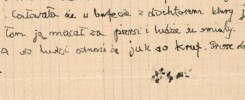 całowała się w bufecie z doktorem który j
tom ją macał za piersi i ludzie się śmiały.
A do ludzi odnosi się jak do krup.